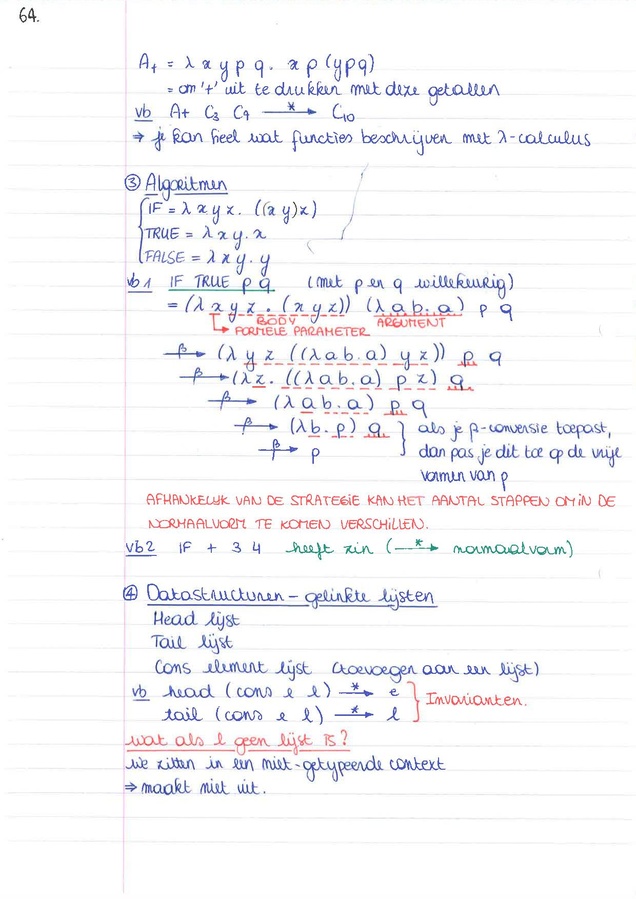 64.
A₊ = λ x y p q. x p (y p q)
= om '+' uit te drukken met deze getallen
vb A+ C₃ C₇ →* C₁₀
⇒ je kan heel wat functies beschrijven met λ-calculus
③ Algoritmen
IF = λ x y z. ((x y) z)
TRUE = λ x y. x
FALSE = λ x y. y
vb1 IF TRUE p q (met p en q willekeurig)
= (λ x y z . (x y z)) (λ a b . a) p q
BODY ARGUMENT
FORMELE PARAMETER
β→ (λ y z ((λ a b. a) y z)) p q
β→ (λ z. ((λ a b. a) p z) q
β→ (λ a b. a) p q
β→ (λ b. p) q } als je β-conversie toepast,
β→ p dan pas je dit toe op de vrije
vormen van p
AFHANKELIJK VAN DE STRATEGIE KAN HET AANTAL STAPPEN OM IN DE
NORMAALVORM TE KOMEN VERSCHILLEN.
vb2 IF + 3 4 heeft zin (→* normaalvorm)
④ Datastructuren - gelinkte lijsten
Head lijst
Tail lijst
Cons element lijst (toevoegen aan een lijst)
vb head (cons e l) →* e } Invarianten.
tail (cons e l) →* l
wat als l geen lijst is?
we zitten in een niet-getypeerde context
⇒ maakt niet uit.